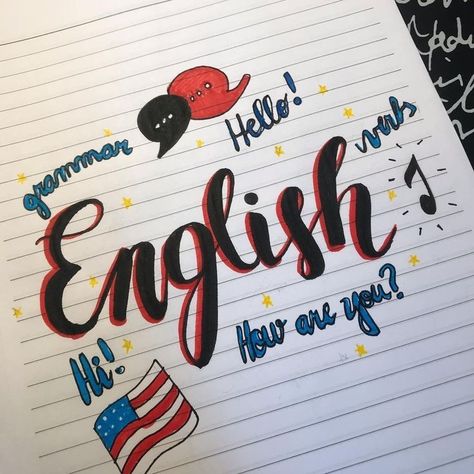 Hello!
grammar
verbs
English
How are you?
Hi!